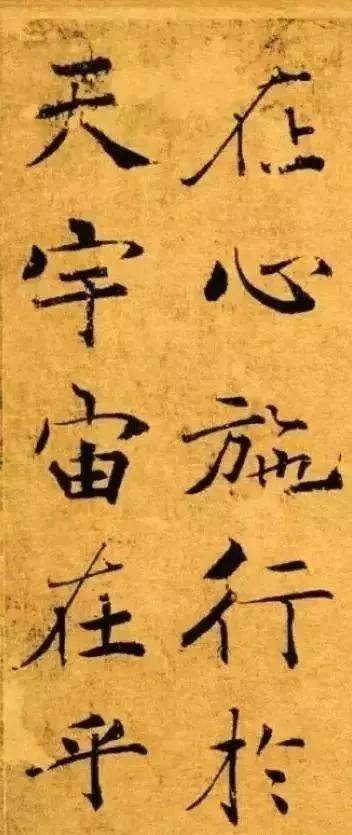 在心施行於
天宇宙在乎